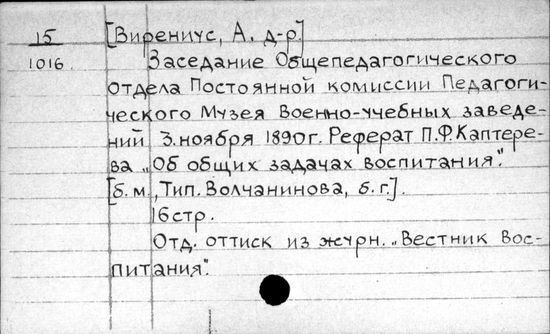 15
1016.
[Вирениус, А. д-р.]
Заседание Общепедагогического
отдела Постоянной комиссии Педагоги-
ческого Музея Военно-учебных заведе-
ний 3. ноября 1890 г. Реферат П.Ф. Каптере-
ва „Об общих задачах воспитания".
[б. м., Тип. Волчанинова, б. г.].
16 стр.
Отд. оттиск из журн. „Вестник Вос-
питания".